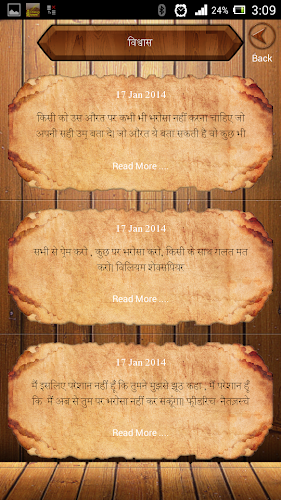 24% 3:09
विश्वास
Back
17 Jan 2014
किसी को उस औरत पर कभी भी भरोसा नहीं करना चाहिए जो
अपनी सही उम्र बता दे। जो औरत ये बता सकती है वो कुछ भी
Read More ....
17 Jan 2014
सभी से प्रेम करो , कुछ पर भरोसा करो, किसी के साथ गलत मत
करो। विलियम शेक्सपियर
Read More ....
17 Jan 2014
मैं इसलिए परेशान नहीं हूँ कि तुमने मुझसे झूठ कहा , मैं परेशान हूँ
कि मैं अब से तुम पर भरोसा नहीं कर सकूँगा। फ्रीडरिच- नेतज़स्चे
Read More ....